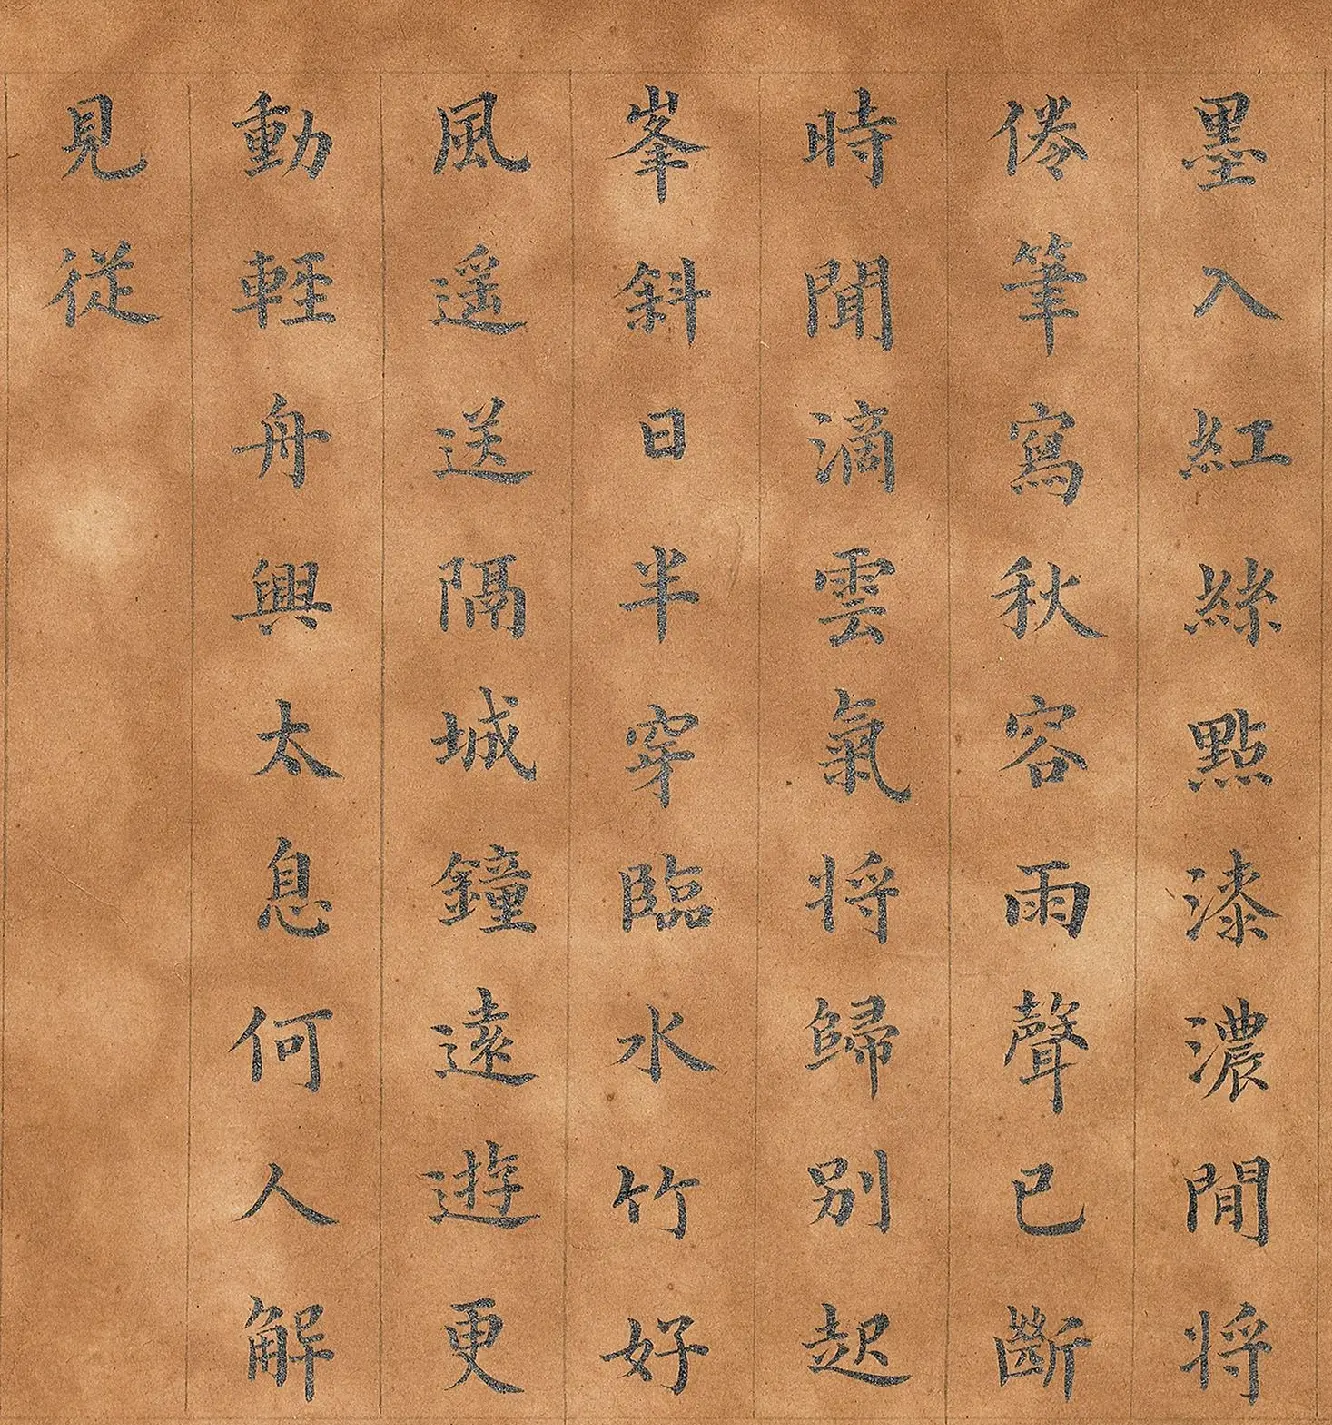 墨入紅絲點漆濃閒将
倦筆寫秋容雨聲已斷
時聞滴雲氣将歸别起
峯斜日半穿臨水竹好
風遥送隔城鐘遠遊更
動輕舟興太息何人解
見従